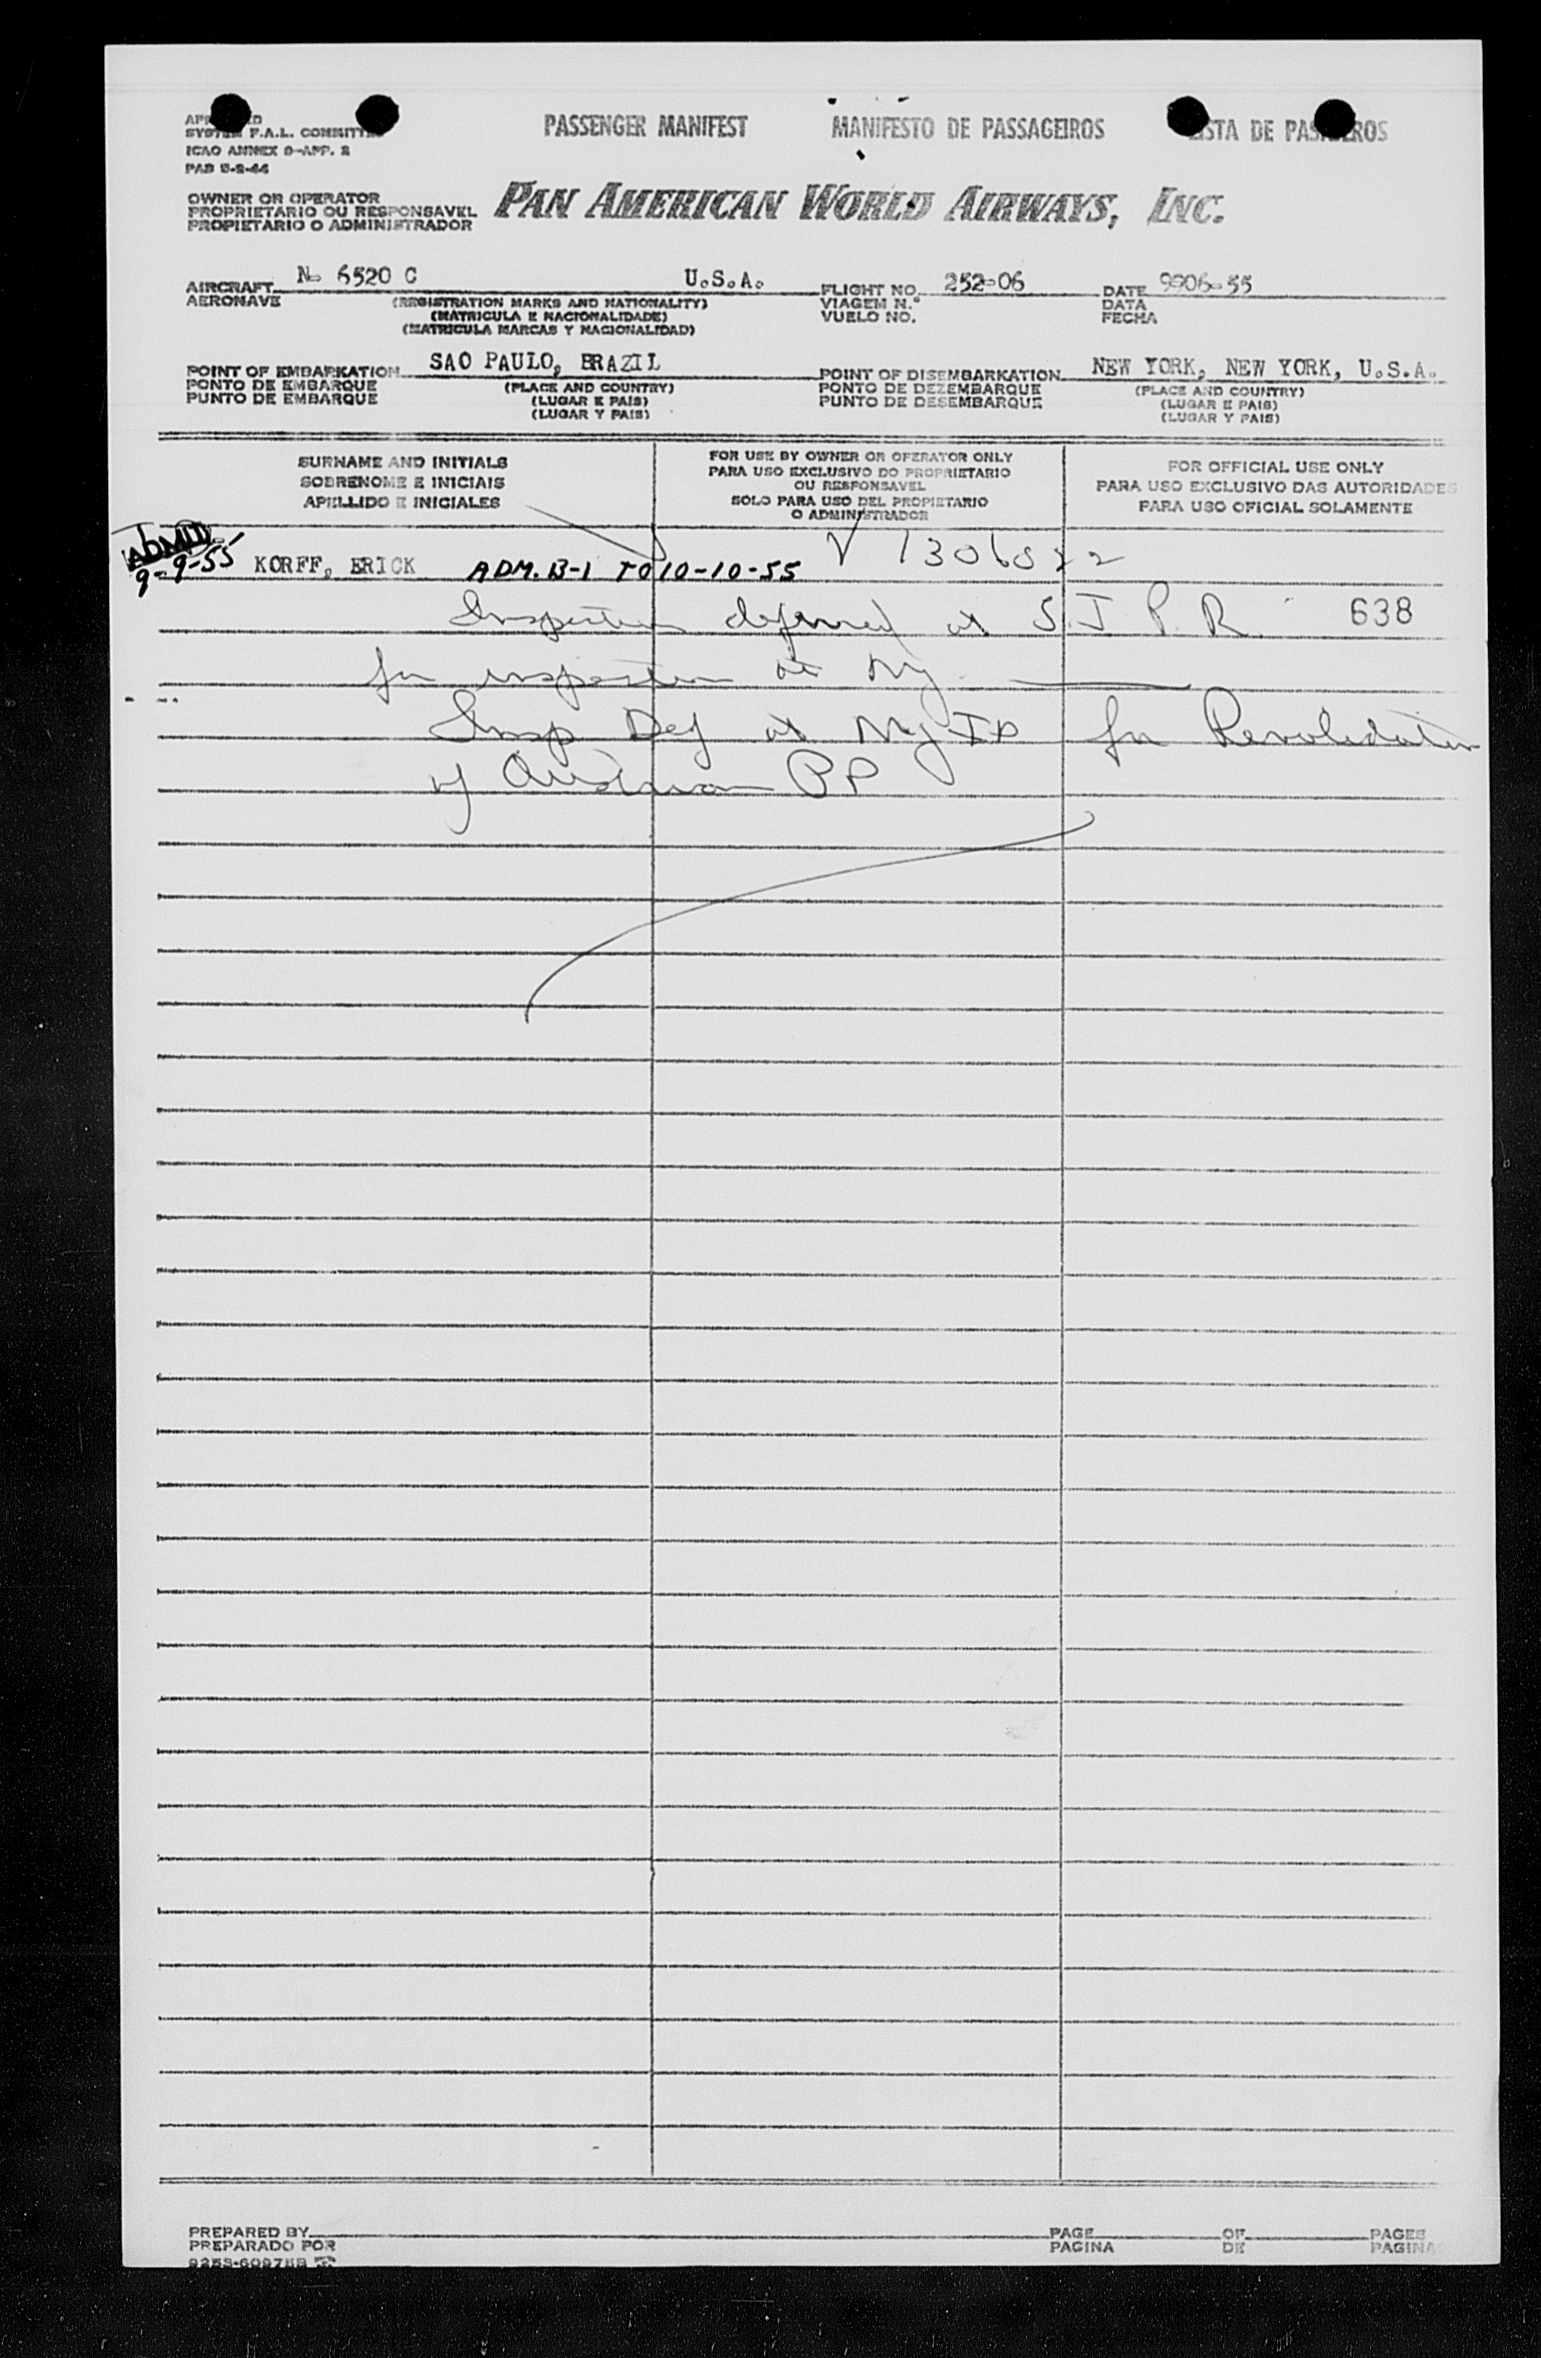 PASSENGER MANIFEST MANIFESTO DE PASSAGEIROS LISTA DE PASAJEROS
SYSTEM F.A.L. COMMITTEE
ICAO ANNEX 9-APP. 2
PAB 5-2-44
OWNER OR OPERATOR
PROPRIETARIO OU RESPONSAVEL
PROPIETARIO O ADMINISTRADOR
PAN AMERICAN WORLD AIRWAYS, INC.
AIRCRAFT N- 6520 C U.S.A. FLIGHT NO. 252-06 DATE 9-06-55
AERONAVE (REGISTRATION MARKS AND NATIONALITY) VIAGEM N.º DATA
(MATRICULA E NACIONALIDADE) VUELO NO. FECHA
(MATRICULA MARCAS Y NACIONALIDAD)
POINT OF EMBARKATION SAO PAULO, BRAZIL POINT OF DISEMBARKATION NEW YORK, NEW YORK, U.S.A.
PONTO DE EMBARQUE (PLACE AND COUNTRY) PONTO DE DEZEMBARQUE (PLACE AND COUNTRY)
PUNTO DE EMBARQUE (LUGAR E PAIS) PUNTO DE DESEMBARQUE (LUGAR E PAIS)
(LUGAR Y PAIS) (LUGAR Y PAIS)
SURNAME AND INITIALS
SOBRENOME E INICIAIS
APELLIDO E INICIALES
FOR USE BY OWNER OR OPERATOR ONLY
PARA USO EXCLUSIVO DO PROPRIETARIO
OU RESPONSAVEL
SOLO PARA USO DEL PROPIETARIO
O ADMINISTRADOR
FOR OFFICIAL USE ONLY
PARA USO EXCLUSIVO DAS AUTORIDADES
PARA USO OFICIAL SOLAMENTE
ADMD
9-9-55 KORFF, ERICK ADM. B-1 TO 10-10-55 V 1306822
Inspection deferred at S.J P.R. 638
for inspection at NY
Insp Def at NY IP for Revalidation
of Austrian PP
PREPARED BY PAGE OF PAGES
PREPARADO POR PAGINA DE PAGINAS